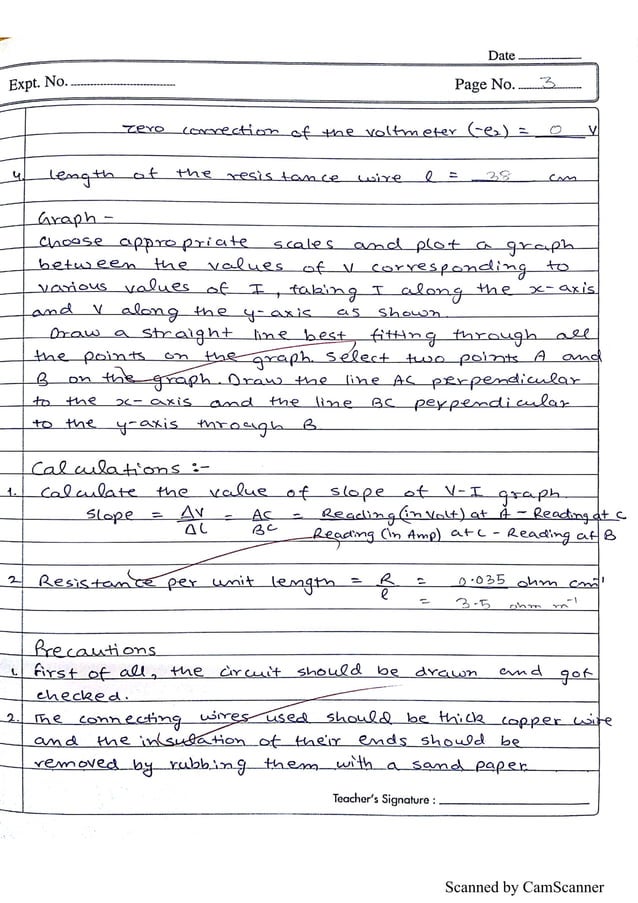 Date
Expt. No.
Page No. 3
zero correction of the voltmeter (-e₂) = 0 V
4. length of the resistance wire l = 38 cm
Graph -
Choose appropriate scales and plot a graph
between the values of V corresponding to
various values of I, taking I along the x-axis
and V along the y-axis as shown.
Draw a straight line best fitting through all
the points on the graph. Select two points A and
B on the graph. Draw the line AC perpendicular
to the x-axis and the line BC perpendicular
to the y-axis through B
Calculations :-
1. Calculate the value of slope of V-I graph.
Slope = ΔV/ΔI = AC/BC = Reading (in Volt) at A - Reading at C / Reading (in Amp) at C - Reading at B
2. Resistance per unit length = R/l = 0.035 ohm cm⁻¹
= 3.5 ohm m⁻¹
Precautions
1. first of all, the circuit should be drawn and got
checked.
2. The connecting wires used should be thick copper wire
and the insulation of their ends should be
removed by rubbing them with a sand paper
Teacher's Signature :
Scanned by CamScanner